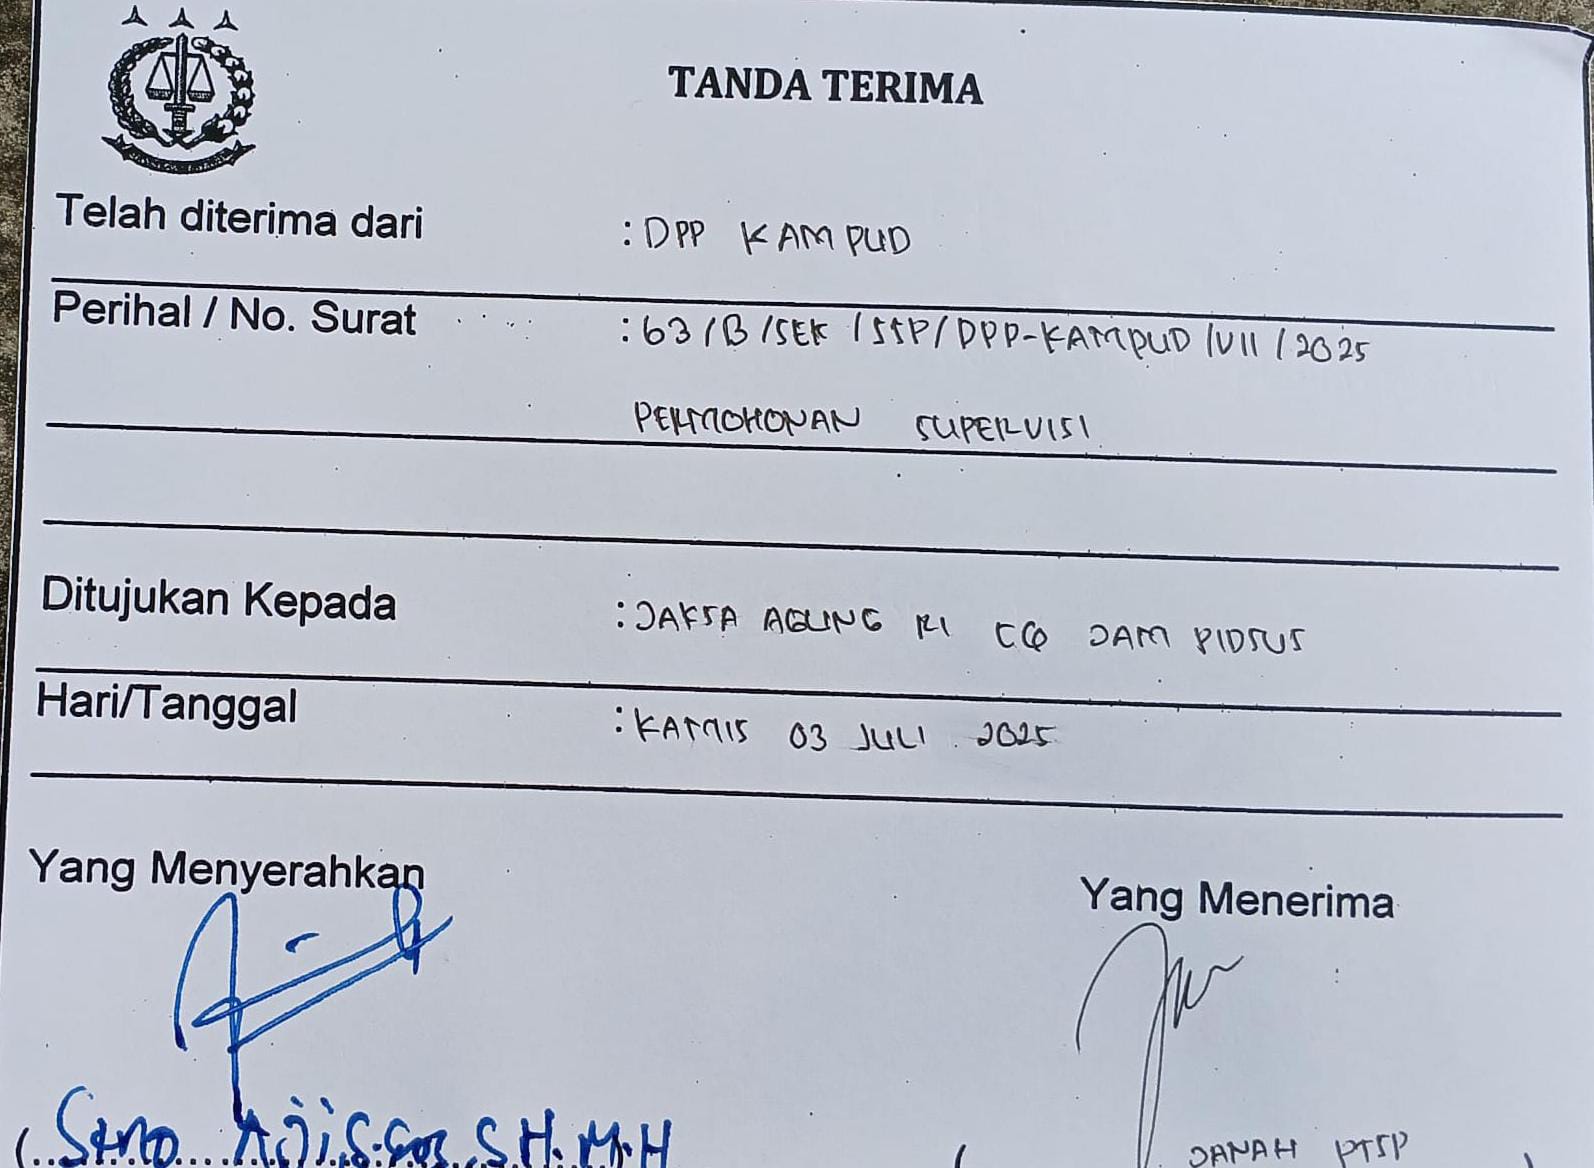 TANDA TERIMA
Telah diterima dari : DPP KAMPUD
Perihal / No. Surat : 63/B/SEK/SSP/DPP-KAMPUD/VII/2025
PERMOHONAN SUPERVISI
Ditujukan Kepada : JAKSA AGUNG RI CQ JAM PIDSUS
Hari/Tanggal : KAMIS 03 JULI 2025
Yang Menyerahkan
Yang Menerima
(Seno Aji, S.Sos, S.H. M.H
( JANAH PTSP )